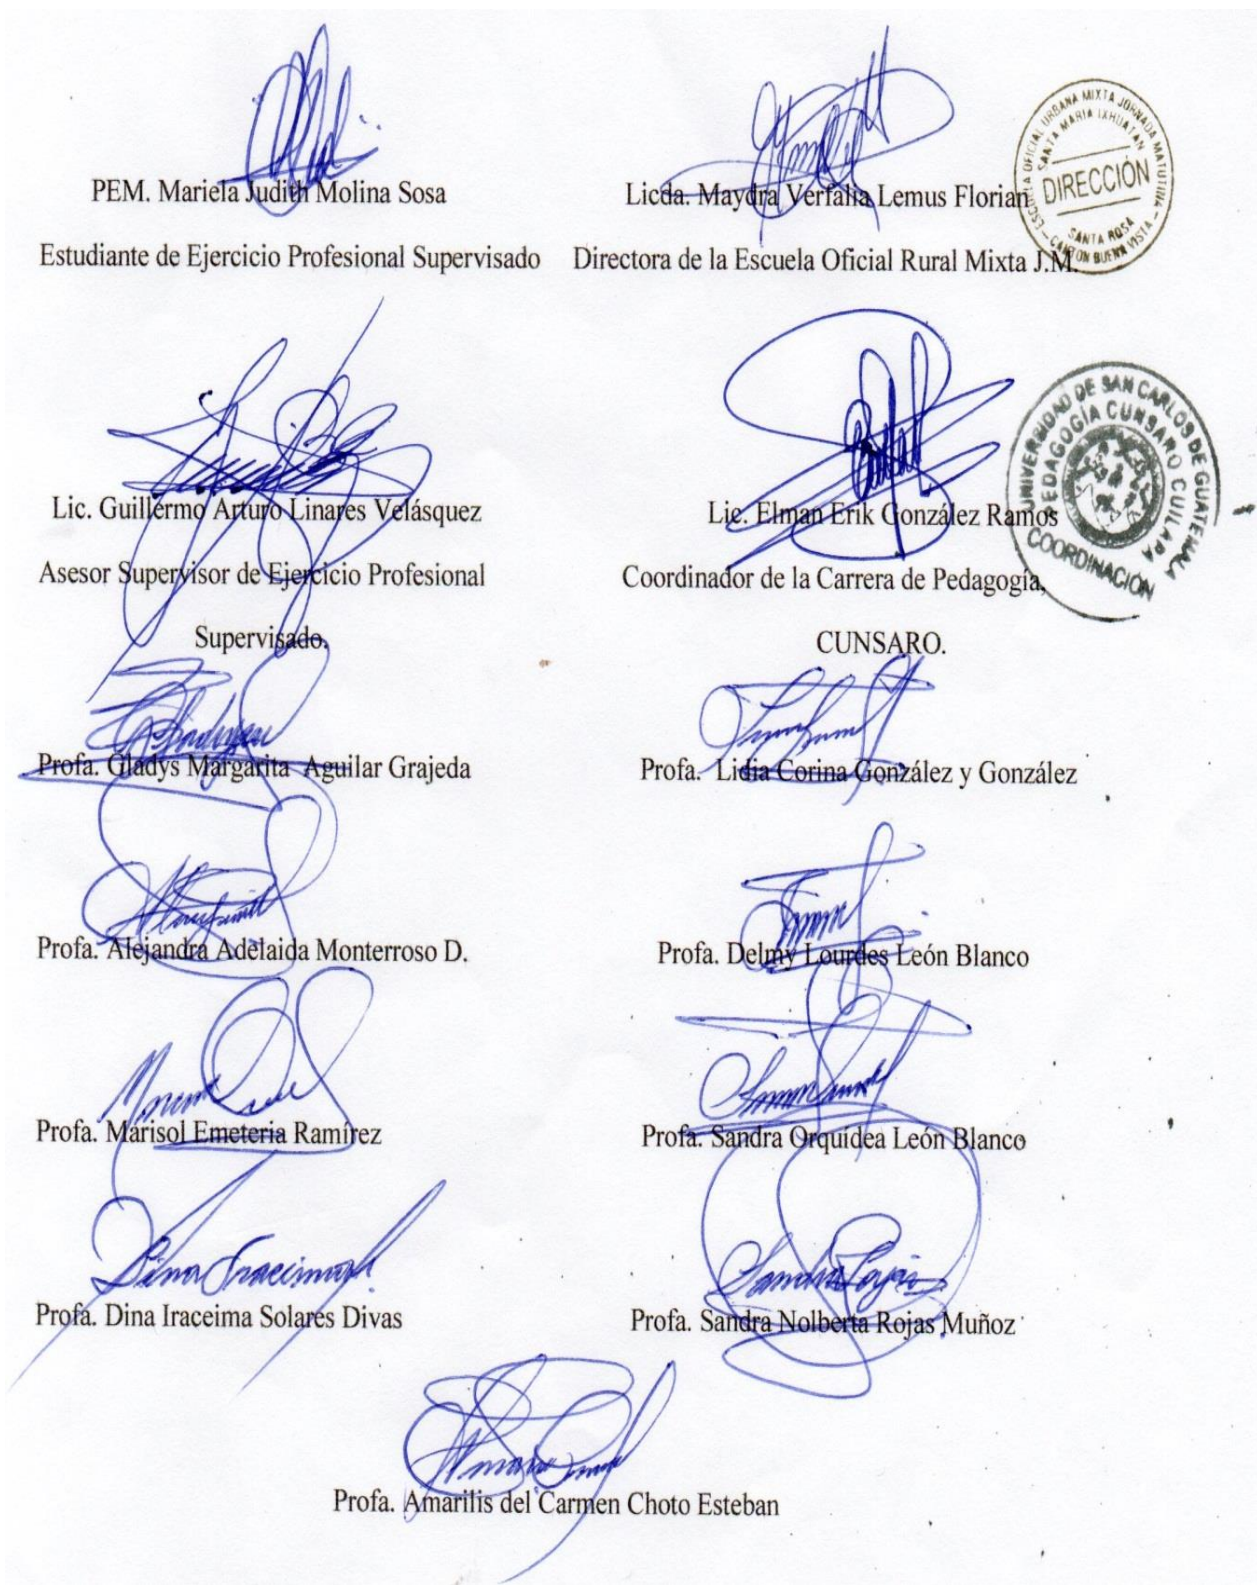 PEM. Mariela Judith Molina Sosa
Estudiante de Ejercicio Profesional Supervisado
Licda. Maydra Verfalia Lemus Florian
Directora de la Escuela Oficial Rural Mixta J.M.
ESCUELA OFICIAL URBANA MIXTA JORNADA MATUTINA
SANTA MARIA IXHUATAN
DIRECCIÓN
SANTA ROSA
CANTON BUENA VISTA
Lic. Guillermo Arturo Linares Velásquez
Asesor Supervisor de Ejercicio Profesional
Supervisado.
Lic. Elman Erik González Ramos
Coordinador de la Carrera de Pedagogía,
CUNSARO.
UNIVERSIDAD DE SAN CARLOS DE GUATEMALA
PEDAGOGÍA CUNSARO CUILAPA
COORDINACIÓN
Profa. Gladys Margarita Aguilar Grajeda
Profa. Lidia Corina González y González
Profa. Alejandra Adelaida Monterroso D.
Profa. Delmy Lourdes León Blanco
Profa. Marisol Emeteria Ramírez
Profa. Sandra Orquídea León Blanco
Dina Iraceima
Profa. Dina Iraceima Solares Divas
Sandra Rojas
Profa. Sandra Nolberta Rojas Muñoz
Profa. Amarilis del Carmen Choto Esteban